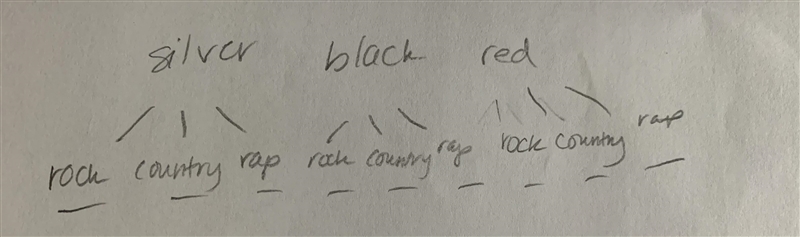 silver black red
rock country rap rock country rap rock country rap